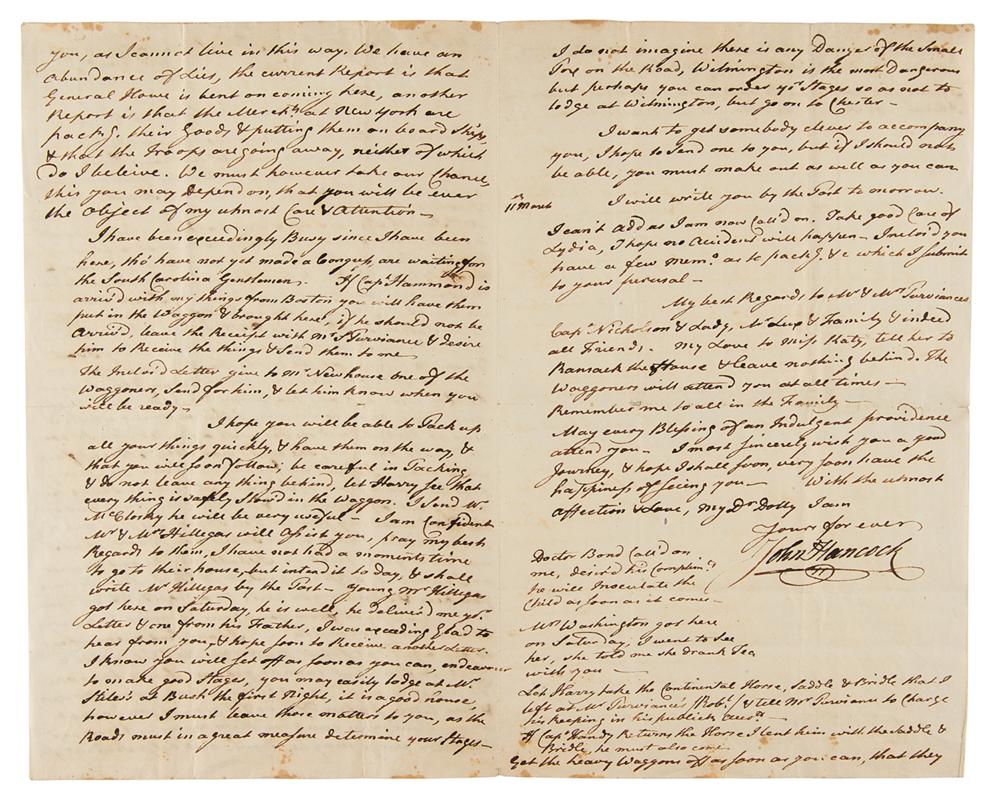 you, as I cannot live in this way. We have an
abundance of Lies, the current Report is that
General Howe is bent on coming here, another
Report is that the Merch.ts at New York are
pack.g their Goods & putting them on board Ships
& that the Troops are going away, neither of which
do I beleive. We must however take our Chances,
this you may depend on, that you will be ever
the object of my utmost Care & Attention —
I have been exceedingly Busy since I have been
here, tho' have not yet made a Congress, are waiting for
the South Carolina Gentlemen. If Cap.t Hammond is
arriv'd with my things from Boston you will have them
put in the Waggon & brought here, if he should not be
Arriv'd, leave the Receipt with Mr Purviance & desire
him to Receive the things & Send them to me
The Inclos'd Letter give to Mr. Newhouse one of the
Waggoners, Send for him, & let him know when you
will be ready —
I hope you will be able to Pack up
all your things quickly, & have them on the way, &
that you will soon follow; be careful in Packing
& do not leave any thing behind, let Harry see that
every thing is safely Stow'd in the Waggon. I send Mr.
McClosky he will be very useful — I am Confident
Mr & Mrs Hillegas will assist you, pray my best
Regards to them, I have not had a moments time
to go to their house, but intend it to day, & shall
write Mr Hillegas by the Post — Young Mr Hillegas
got here on Saturday, he is well, he deliver'd me yo.r
Letter & one from his Father, I was exceeding Glad to
hear from you, & hope soon to Receive another Letter.
I know you will set off as soon as you can, endeavour
to make good Stages, you may easily lodge at Mr.
Stiles's at Bush the first Night, it is a good house,
however I must leave those matters to you, as the
Roads must in a great measure determine your Stages —
I do not imagine there is any Danger of the Small
Pox on the Road, Wilmington is the most Dangerous
but perhaps you can order yo.r Stages so as not to
lodge at Wilmington, but go on to Chester —
I want to get somebody clever to accompany
you, I hope to Send one to you, but if I should not
be able, you must make out as well as you can
11th March
I will write you by the Post to morrow.
I can't add as I am now Call'd on. Take good Care of
Lydia, I hope no Accident will happen — I inclos'd you
have a few Mem.o as to pack.g &c which I submit
to your perusal —
My best Regards to Mr & Mrs Purviances
Cap.t Nicholson & Lady, Mr Lux & Family & indeed
all Friends. My Love to Miss Katy, tell her to
Ransack the House & leave nothing behind. The
Waggoners will attend you at all times —
Remember me to all in the Family —
May every Blessing of an Indulgent providence
attend you — I most sincerely wish you a good
Journey, & hope I shall soon, very soon have the
happiness of seeing you — With the utmost
affection & Love, my D.r Dolly I am
Yours for ever
John Hancock
Doctor Bond Call'd on
me, desir'd his Complim.ts
he will Inoculate the
Child as soon as it comes —
Mrs Washington got here
on Saturday, I went to See
her, she told me she drank Tea
with you —
Let Harry take the Continental Horse, Saddle & Bridle that I
left at Mr Purviances /Rob.t/ & tell Mr Purviance to Charge
his keeping in his publick Acco.t
If Cap.t Handy Returns the Horse I lent him with the Saddle &
Bridle, he must also come
Get the heavy Waggons off as soon as you can, that they